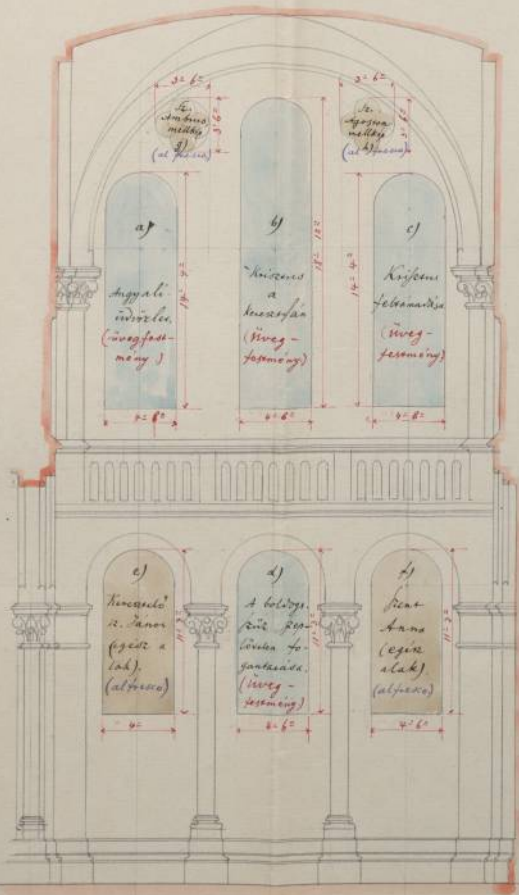 3= 6=
Sz.
Ambrus
mellkép
g)
(al fresco)
3= 6=
3= 6=
Sz.
Ágoston
mellkép
h)
(al fresco)
3= 6=
a)
Angyali
üdvözlet.
(üvegfest-
mény)
14= 4=
4= 6=
b)
Krisztus
a
keresztfán
(üveg-
festmény)
18= 10=
4= 6=
c)
Krisztus
feltámadása
(üveg-
festmény)
14= 4=
4= 6=
e)
Keresztelő
sz. János
(egész a
lak).
(al fresco)
11= 3=
4=
d)
A boldogs.
szűz szep-
lőtelen fo-
gantatása.
(üveg-
festmény)
11= 3=
4= 6=
f)
Szent
Anna
(egész
alak).
(al fresco)
11= 3=
4= 6=